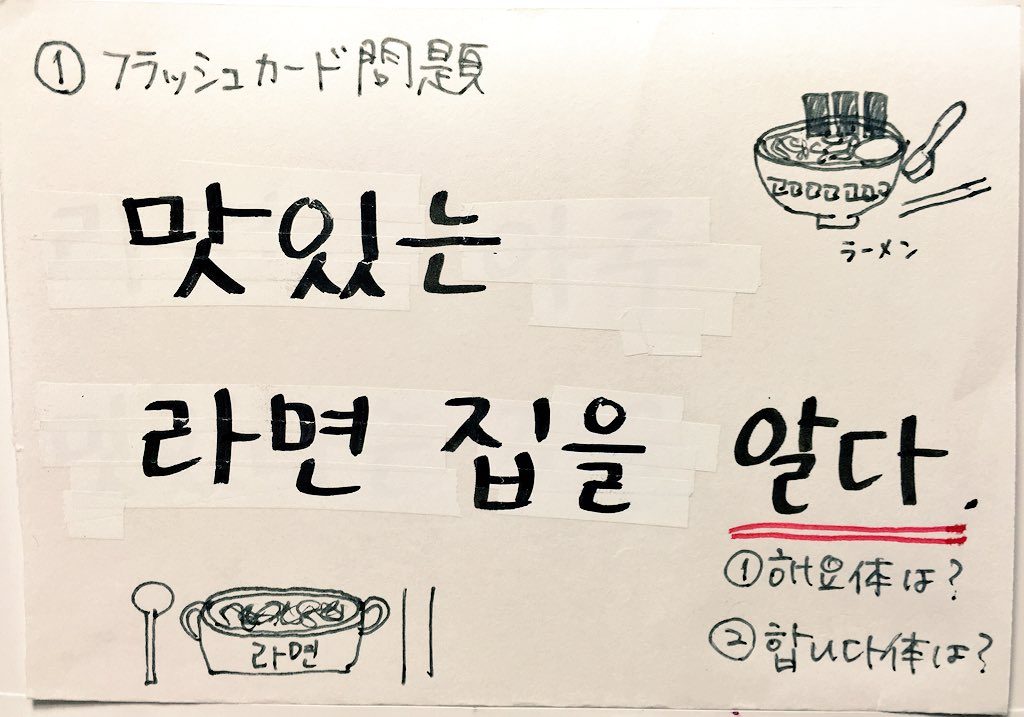 ① フラッシュカード問題
ラーメン
맛있는
라면 집을 알다.
① 해요体は?
② 합니다体は?
라면